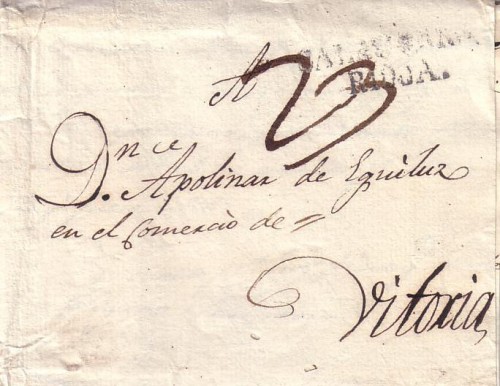 RIOJA.
A
D.n Apolinar de Eguiluz
en el Comercio de =
Vitoria